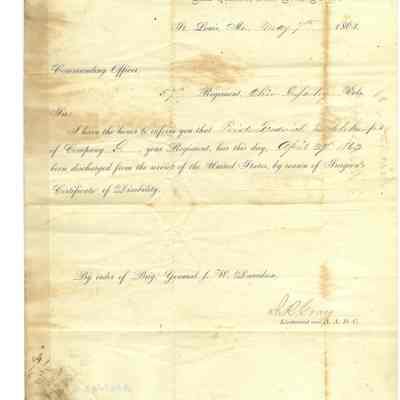 St. Louis, Mo. May 7th 1863.
Commanding Officer
57th Regiment, Ohio Infantry Vols.
Sir:
I have the honor to inform you that Frederick
of Company G your Regiment, has this day, April 29th 1863
been discharged from the service of the United States, by reason of Surgeon's
Certificate of Disability.
By order of Brig. General J. W. Davidson.
Gray
Lieutenant and A. A. D. C.